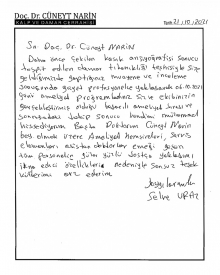 Doç. Dr. CÜNEYT NARİN
KALP VE DAMAR CERRAHI
Tarih 21/10/2021
Sn. Doç. Dr. Cüneyt NARİN
Daha önce çekilen kasık anjiyografisi sonucu
tespit edilen damar tıkanıklığı teşhisiyle size
geldiğimizde yaptığınız muayene ve inceleme
sonucunda gayet profesyonelce yaklaşımda 06.10.2021
günü ameliyat programladınız. Siz ve ekibinizin
gerçekleştirmiş olduğu başarılı ameliyat öncesi ve
sonrasındaki takip sonucu kendimi mükemmel
hissediyorum. Başta Doktorum Cüneyt Narin
bey olmak üzere Ameliyat hemşireleri, servis
elemanları asistan doktorlar emeği geçen
tüm personele güler yüzlü dostça yaklaşımı
ikna edici özellikleri nedeniyle sonsuz teşek
kürlerimi arz ederim
Saygılarımla
Selke